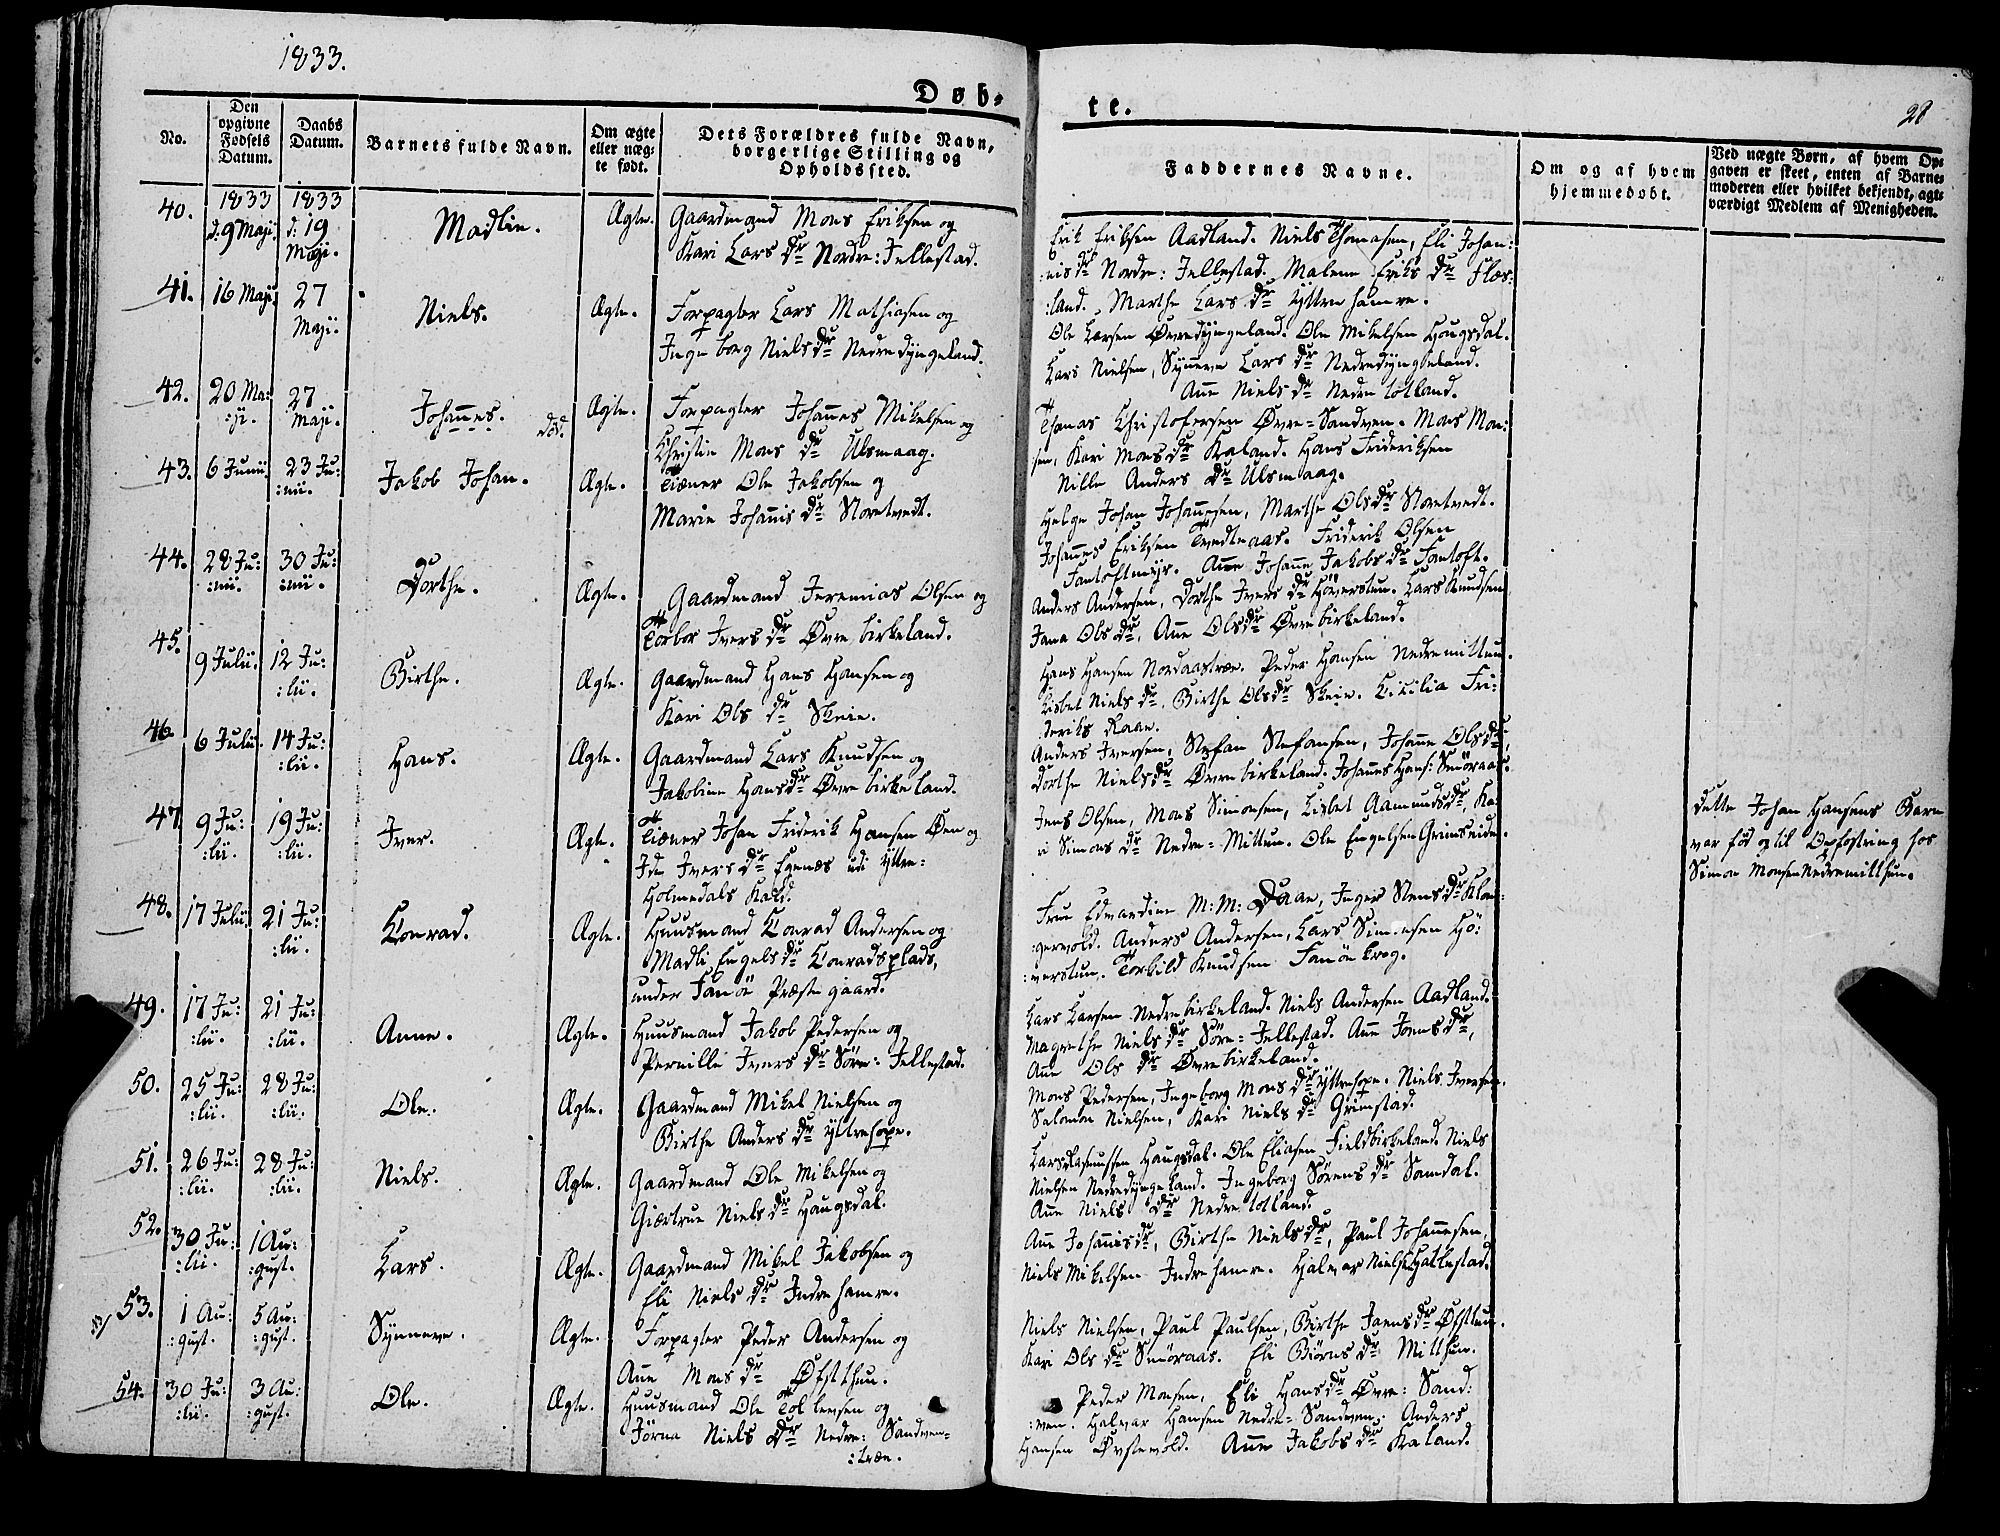 1833.
Døb-
te.
28
No.
Den opgivne Fødsels Datum.
Daabs Datum.
Barnets fulde Navn.
Om ægte eller uægte født.
Dets Forældres fulde Navn, borgerlige Stilling og Opholdssted.
Faddernes Navne.
Om og af hvem hjemmedøbt.
Ved uægte Børn, af hvem Opgaven er skeet, enten af Barnemoderen eller hvilket bekjendt, agtværdigt Medlem af Menigheden.
1833 1833
40. d: 9 Maji. d: 19 Maji. Madlin. Ægte. Gaardmand Mons Eriksen og
Kari Lars Dr Nordre: Jellestad.
Erik Eriksen Aadland. Niels Thomasen, Eli Johan:
:nis Dr Nordre: Jellestad. Malene Eriks Dr Fles:
:land. Marthe Lars Dr Yttrehamre.
41. 16 Maji. 27 Maji. Niels. Ægte. Forpagter Lars Mathisen og
Ingeborg Niels Dr Nedredyngeland.
Ole Larsen Øvredyngeland. Ole Mikelsen Hougsdal.
Lars Nielsen, Synneve Lars Dr Nedredyngeland.
Ane Niels Dr Nedre totland.
42. 20 Ma: :ji. 27 Maji. Johannes. død. Ægte. Forpagter Johannes Mikelsen og
Christin Mons Dr Ulsmaag.
Thomas Christofersen Øvre=Sandven. Mons Mon:
sen, Kari Mons Dr Kaland. Hans Frideriksen
Nille Anders Dr Ulsmaag.
43. 6 Junii. 23 Ju: :nii. Jakob Johan. Ægte. Tiæner Ole Jakobsen og
Marie Johanis Dr Storetvedt.
Helge Johan Johannesen, Marthe Ols Dr Storetvedt.
Johannes Eriksen Tvedteraas. Friderik Olsen
Fantoftmyr. Ane Johanne Jakobs Dr Fantoft.
44. 28 Ju: :nii. 30 Ju: :nii. Dorthe. Ægte. Gaardmand Jeremias Olsen og
Torbor Ivers Dr Øvre birkeland.
Anders Andersen, Dorthe Ivers Dr Höverstun. Lars Knudsen
Jana Ols Dr, Ane Ols Dr Øvre birkeland.
45. 9 Julii. 12 Ju: :lii. Birthe. Ægte. Gaardmand Hans Hansen og
Kari Ols Dr Skeie.
Hans Hansen Nordaastræe. Peder Hansen Nedremittun.
Lisbet Niels Dr, Birthe Ols Dr Skeie. Cicilia Fri:
:deriks Raae.
46. 6 Julii. 14 Ju: :lii. Hans. Ægte. Gaardmand Lars Knudsen og
Jakobine Hans Dr Øvre birkeland.
Anders Iversen, Stefan Stefansen, Johanne Ols Dr,
Dorthe Niels Dr Øvre birkeland. Johannes Hans: Smöraas.
47. 9 Ju: :lii. 19 Ju: :lii. Iver. Ægte. Tiæner Johan Friderik Hansen Øen og
Ide Ivers Dr Egenæs udi Yttre=
Holmedals Kald.
Jens Olsen, Mons Simonsen, Lisbet Aamunds Dr, Ka:
ri Simons Dr Nedre=Mittun. Ole Engelsen Grimseide.
Dette Johan Hansens Barn
var fød og til Opfostring hos
Simon Monsen Nedremitthun.
48. 17 Julii. 21 Ju: :lii. Conrad. Ægte. Huusmand Conrad Andersen og
Madli Engels Dr Conradsplads,
under Fanöe Præste gaard.
Frue Edvardine M: M: Daae, Inger Stens Dr Klon:
:gervold. Anders Andersen, Lars Simonsen Hö:
:verstun. Torkild Knudsen Fanöe krog.
49. 17 Ju: :lii. 21 Ju: :lii. Anne. Ægte. Huusmand Jakob Pedersen og
Pernille Ivers Dr Söre: Jellestad.
Lars Larsen Nedre birkeland. Niels Andersen Aadland.
Magrethe Niels Dr Söre=Jellestad. Ane Joens Dr,
Ane Ols Dr Øvre birkeland.
50. 25 Ju: :lii. 28 Ju: :lii. Ole. Ægte. Gaardmand Mikel Nielsen og
Birthe Anders Dr Yttrehope.
Mons Pedersen, Ingeborg Mons Dr Yttrehope. Niels Iversen.
Salomon Nielsen, Kari Niels Dr Grimstad.
51. 26 Ju: :lii. 28 Ju: :lii. Niels. Ægte. Gaardmand Ole Mikelsen og
Giærtrue Niels Dr Haugsdal.
Lars Rasmussen Haugsdal. Ole Eliasen Fieldbirkeland. Niels
Nielsen Nedredyngeland. Ingeborg Sörens Dr Samdal.
Ane Niels Dr Nedre totland.
52. 30 Ju: :lii. 1 Au: :gust. Lars. Ægte. Gaardmand Mikel Jakobsen og
Eli Niels Dr Indre hamre.
Ane Johanis Dr, Birthe Niels Dr, Paul Johannesen,
Niels Mikelsen Indre hamre. Halvar Nielsen Hattlestad.
53. 1 Au: :gust. 5 Au: :gust. Synneve. Ægte. Forpagter Peder Andersen og
Ane Mons Dr Øfstthun.
Niels Nielsen, Paul Paulsen, Birthe Jaens Dr Øfsttun.
Kari Ols Dr Smöraas. Eli Biörns Dr Mitthun.
54. 30 Ju: :lii. 3 Au: :gust. Ole. Ægte. Huusmand Ole Tollevsen og
Jörna Niels Dr Nedre: Sandven=
:træe.
Peder Monsen, Eli Hans Dr Øvre: Sand:
:ven. Halvar Hansen Nedre=Sandven. Anders
Hansen Øvstevold. Ane Jakobs Dr Kaland.